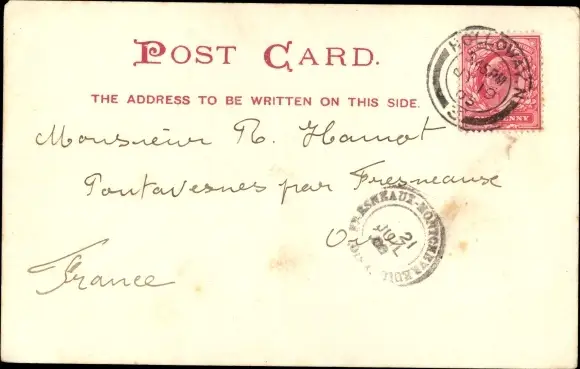 POST CARD.
THE ADDRESS TO BE WRITTEN ON THIS SIDE.
HOLLOWAY. N
PENNY
Monsieur R. Hamot
Pontavesnes par Fresneaux
FRESNEAUX-MONTCHEVREUIL
21
JUIL
France